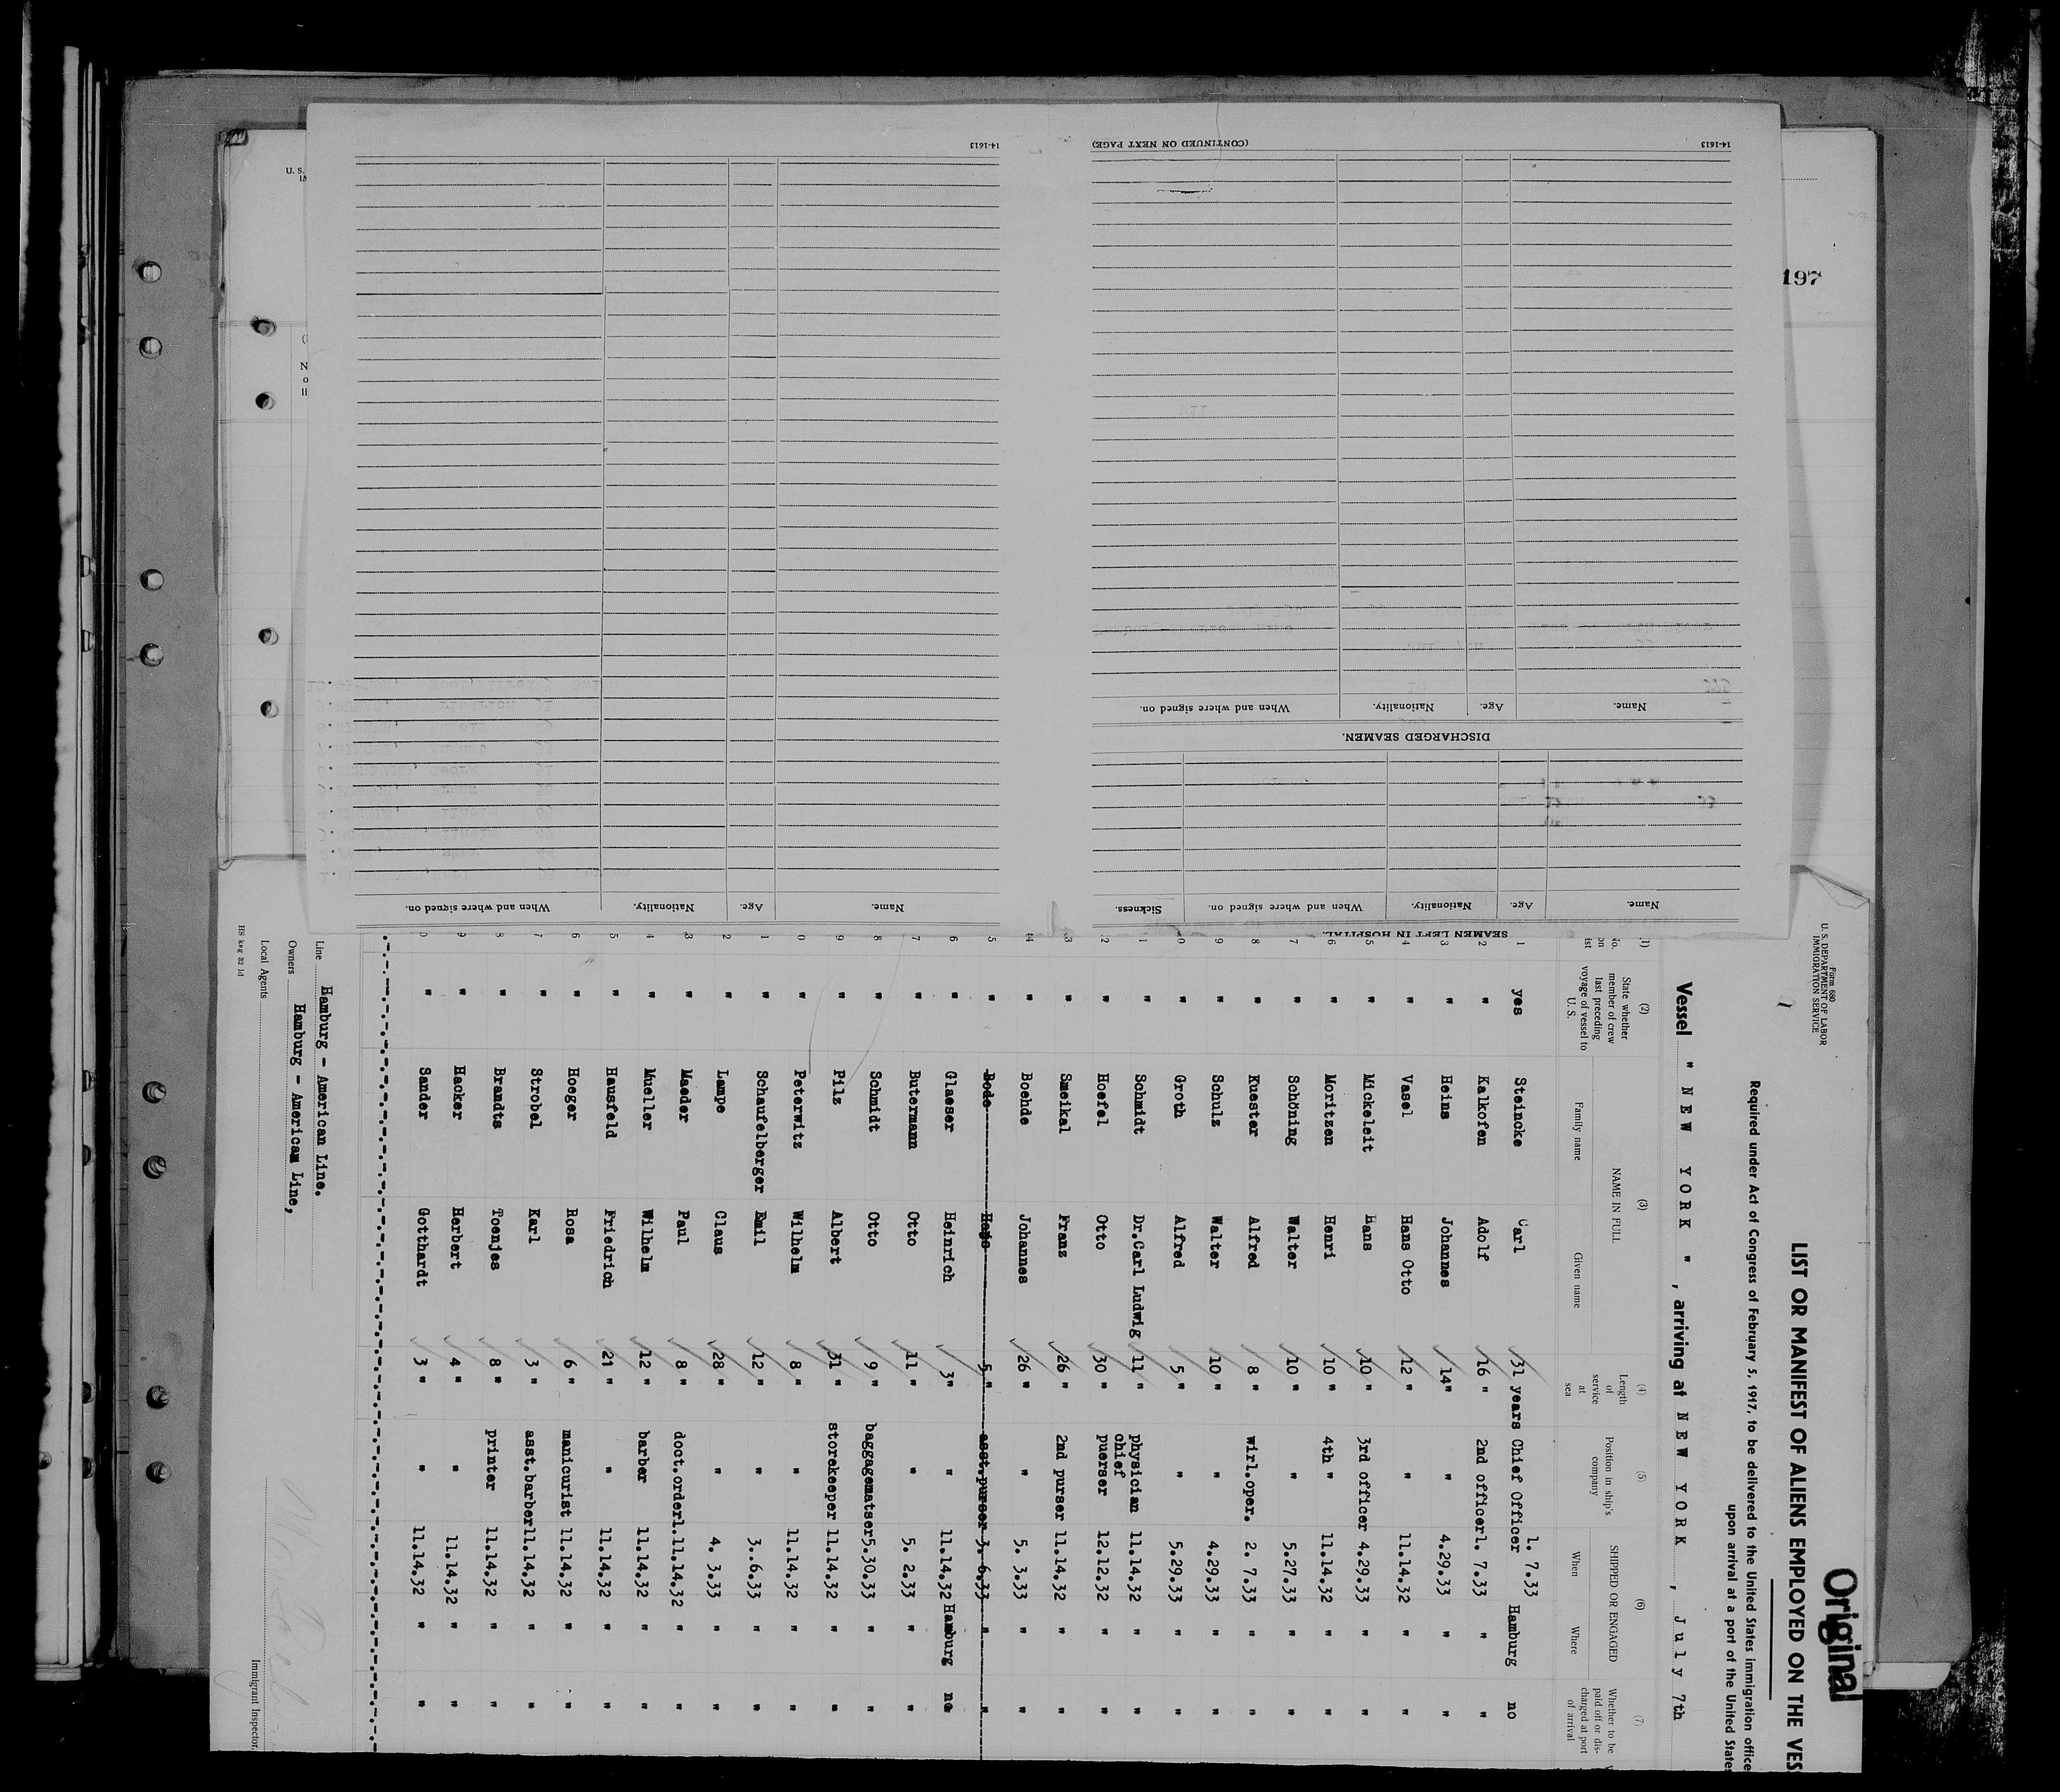 14-1613
(CONTINUED ON NEXT PAGE)
14-1613
197
Name.
Age.
Nationality.
When and where signed on.
DISCHARGED SEAMEN.
SEAMEN LEFT IN HOSPITAL.
Name.
Age.
Nationality.
When and where signed on.
Sickness.
Name.
Age.
Nationality.
When and where signed on.
Original
Form 680
U. S. DEPARTMENT OF LABOR
IMMIGRATION SERVICE
LIST OR MANIFEST OF ALIENS EMPLOYED ON THE VES
Required under Act of Congress of February 5, 1917, to be delivered to the United States immigration office
upon arrival at a port of the United State
Vessel " NEW YORK " , arriving at NEW YORK , July 7th
(2) (3) (4) (5) (6) (7)
State whether member of crew last preceding voyage of vessel to U. S. NAME IN FULL Family name Given name Length of service at sea Position in ship's company SHIPPED OR ENGAGED When Where Whether to be paid off or discharged at port of arrival
1 yes Steincke Carl 31 years Chief Officer 1. 7.33 Hamburg no
2 " Kalkofen Adolf 16 " 2nd officer 1. 7.33 " "
3 " Heins Johannes 14 " " 4.29.33 " "
4 " Vasel Hans Otto 12 " " 11.14.32 " "
5 " Mickeleit Hans 10 " 3rd officer 4.29.33 " "
6 " Moritzen Henri 10 " 4th " 11.14.32 " "
7 " Schöning Walter 10 " " 5.27.33 " "
8 " Kuester Alfred 8 " wirl.oper. 2. 7.33 " "
9 " Schulz Walter 10 " " 4.29.33 " "
0 " Groth Alfred 5 " " 5.29.33 " "
1 " Schmidt Dr.Carl Ludwig 11 " physician 11.14.32 " "
2 " Hoefel Otto 30 " chief puerser 12.12.32 " "
3 " Smeikal Franz 26 " 2nd purser 11.14.32 " "
4 " Boehde Johannes 26 " " 5. 3.33 " "
5 " Bode Hugo 5 " asst.purser 3. 6.33 " "
6 " Glaeser Heinrich 3 " " 11.14.32 Hamburg no
7 " Butermann Otto 11 " " 5. 2.33 " "
8 " Schmidt Otto 9 " baggagematser 5.30.33 " "
9 " Pilz Albert 31 " storekeeper 11.14.32 " "
0 " Peterwitz Wilhelm 8 " " 11.14.32 " "
1 " Schaufelberger Emil 12 " " 3..6.33 " "
2 " Lampe Claus 28 " " 4. 3.33 " "
3 " Maeder Paul 8 " doct.orderl. 11.14.32 " "
4 " Mueller Wilhelm 12 " barber 11.14.32 " "
5 " Hausfeld Friedrich 21 " " 11.14.32 " "
6 " Hoeger Rosa 6 " manicurist 11.14.32 " "
7 " Strobel Karl 3 " asst.barber 11.14.32 " "
8 " Brandts Toenjes 8 " printer 11.14.32 " "
9 " Hacker Herbert 4 " " 11.14.32 " "
0 " Sander Gotthardt 3 " " 11.14.32 " "
Line Hamburg - American Line.
Owners Hamburg - American Line,
Local Agents
Immigrant Inspector.